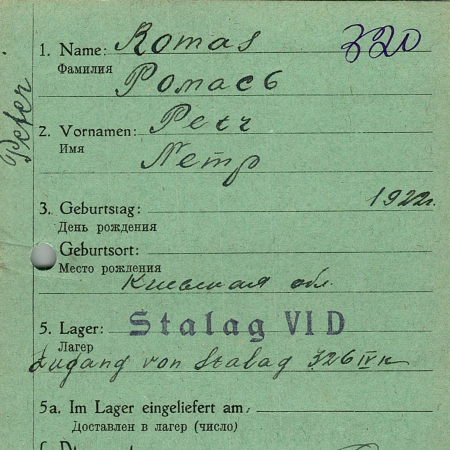 1. Name: Romas 320
Фамилия
Ромась
Peter
2. Vornamen: Petr
Имя
Петр
3. Geburtstag: 1922г.
День рождения
Geburtsort:
Место рождения
Киевская обл.
5. Lager: Stalag VI D
Лагерь
Zugang von Stalag 326 VI K
5a. Im Lager eingeliefert am:
Доставлен в лагерь (число)